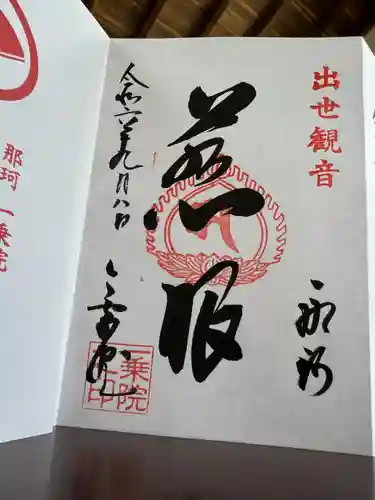 出世観音
那珂
慈眼
令和六年九月八日
一乗院
一乗院
之印
那珂
一乗院